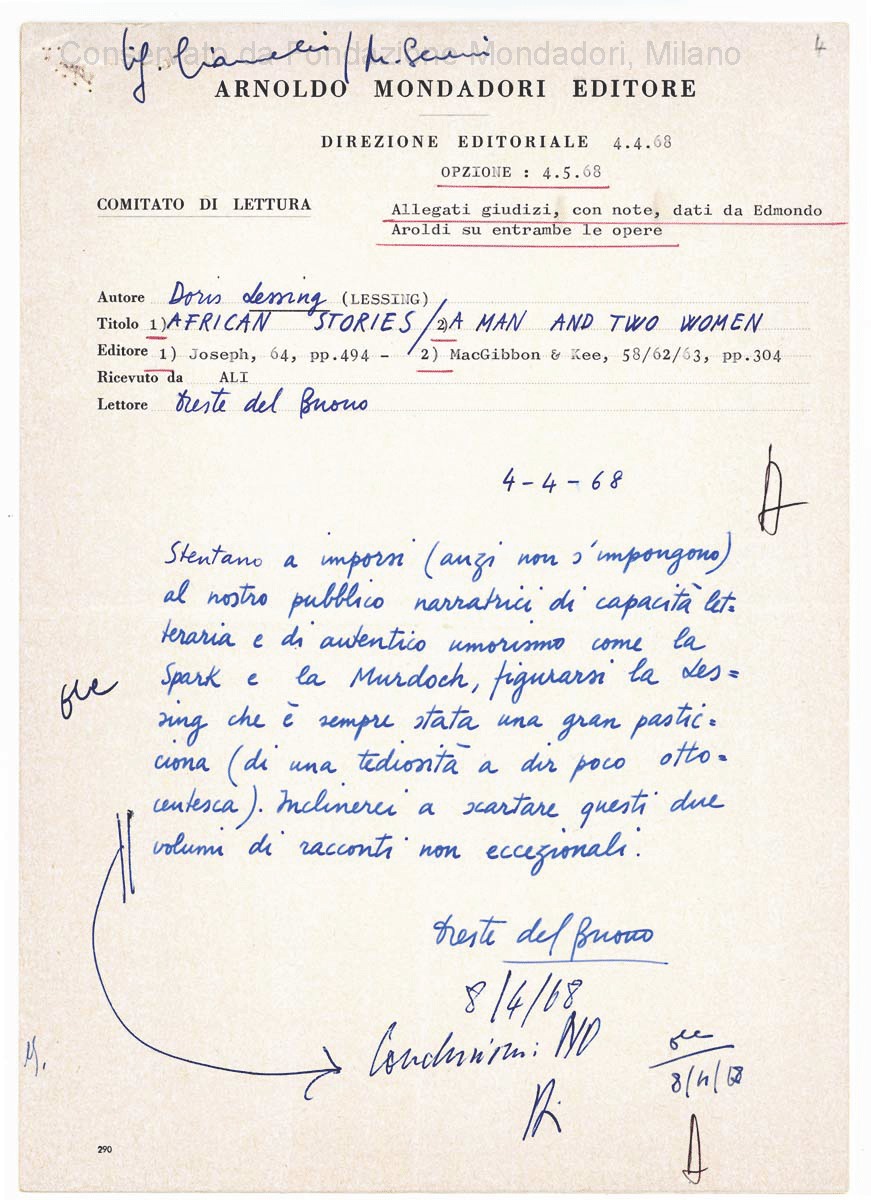 Conservato da Fondazione Mondadori, Milano
4
/ 
ARNOLDO MONDADORI EDITORE
DIREZIONE EDITORIALE 4.4.68
OPZIONE : 4.5.68
COMITATO DI LETTURA
Allegati giudizi, con note, dati da Edmondo
Aroldi su entrambe le opere
Autore Doris Lessing (LESSING)
Titolo 1) AFRICAN STORIES / 2) A MAN AND TWO WOMEN
Editore 1) Joseph, 64, pp.494 - 2) MacGibbon & Kee, 58/62/63, pp.304
Ricevuto da ALI
Lettore Oreste del Buono
4-4-68
Stentano a imporsi (anzi non s'impongono)
al nostro pubblico narratrici di capacità let=
teraria e di autentico umorismo come la
Spark e la Murdoch, figurarsi la Les=
sing che è sempre stata una gran pastic=
ciona (di una tediosità a dir poco otto=
centesca). Inclinerei a scartare questi due
volumi di racconti non eccezionali.
Oreste del Buono
8/4/68
Conclusioni: NO
290